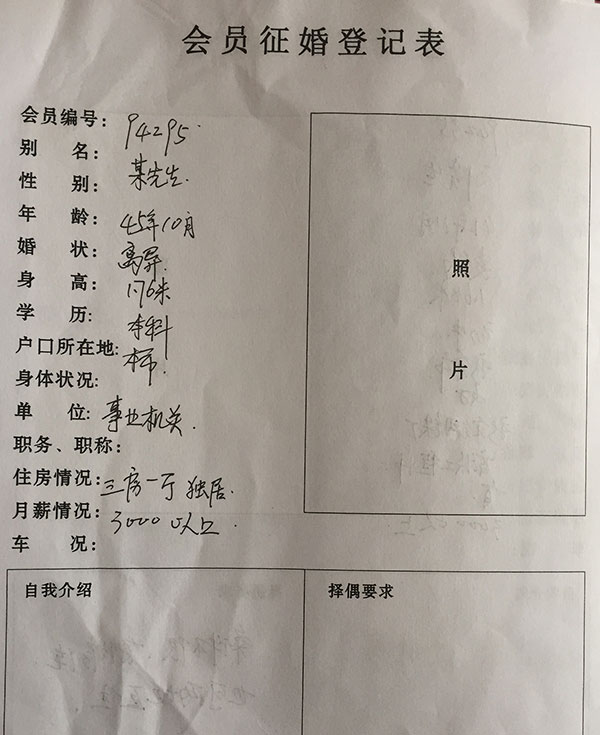 会员征婚登记表
会员编号: 94295
别 名:
性 别: 某先生.
年 龄: 45年10月
婚 状: 离异.
身 高: 1.76米
学 历: 本科
户口所在地: 本市.
身体状况:
单 位: 事业机关.
职务、职称:
住房情况: 三房一厅 独居.
月薪情况: 3000以上.
车 况:
照
片
自我介绍
择偶要求